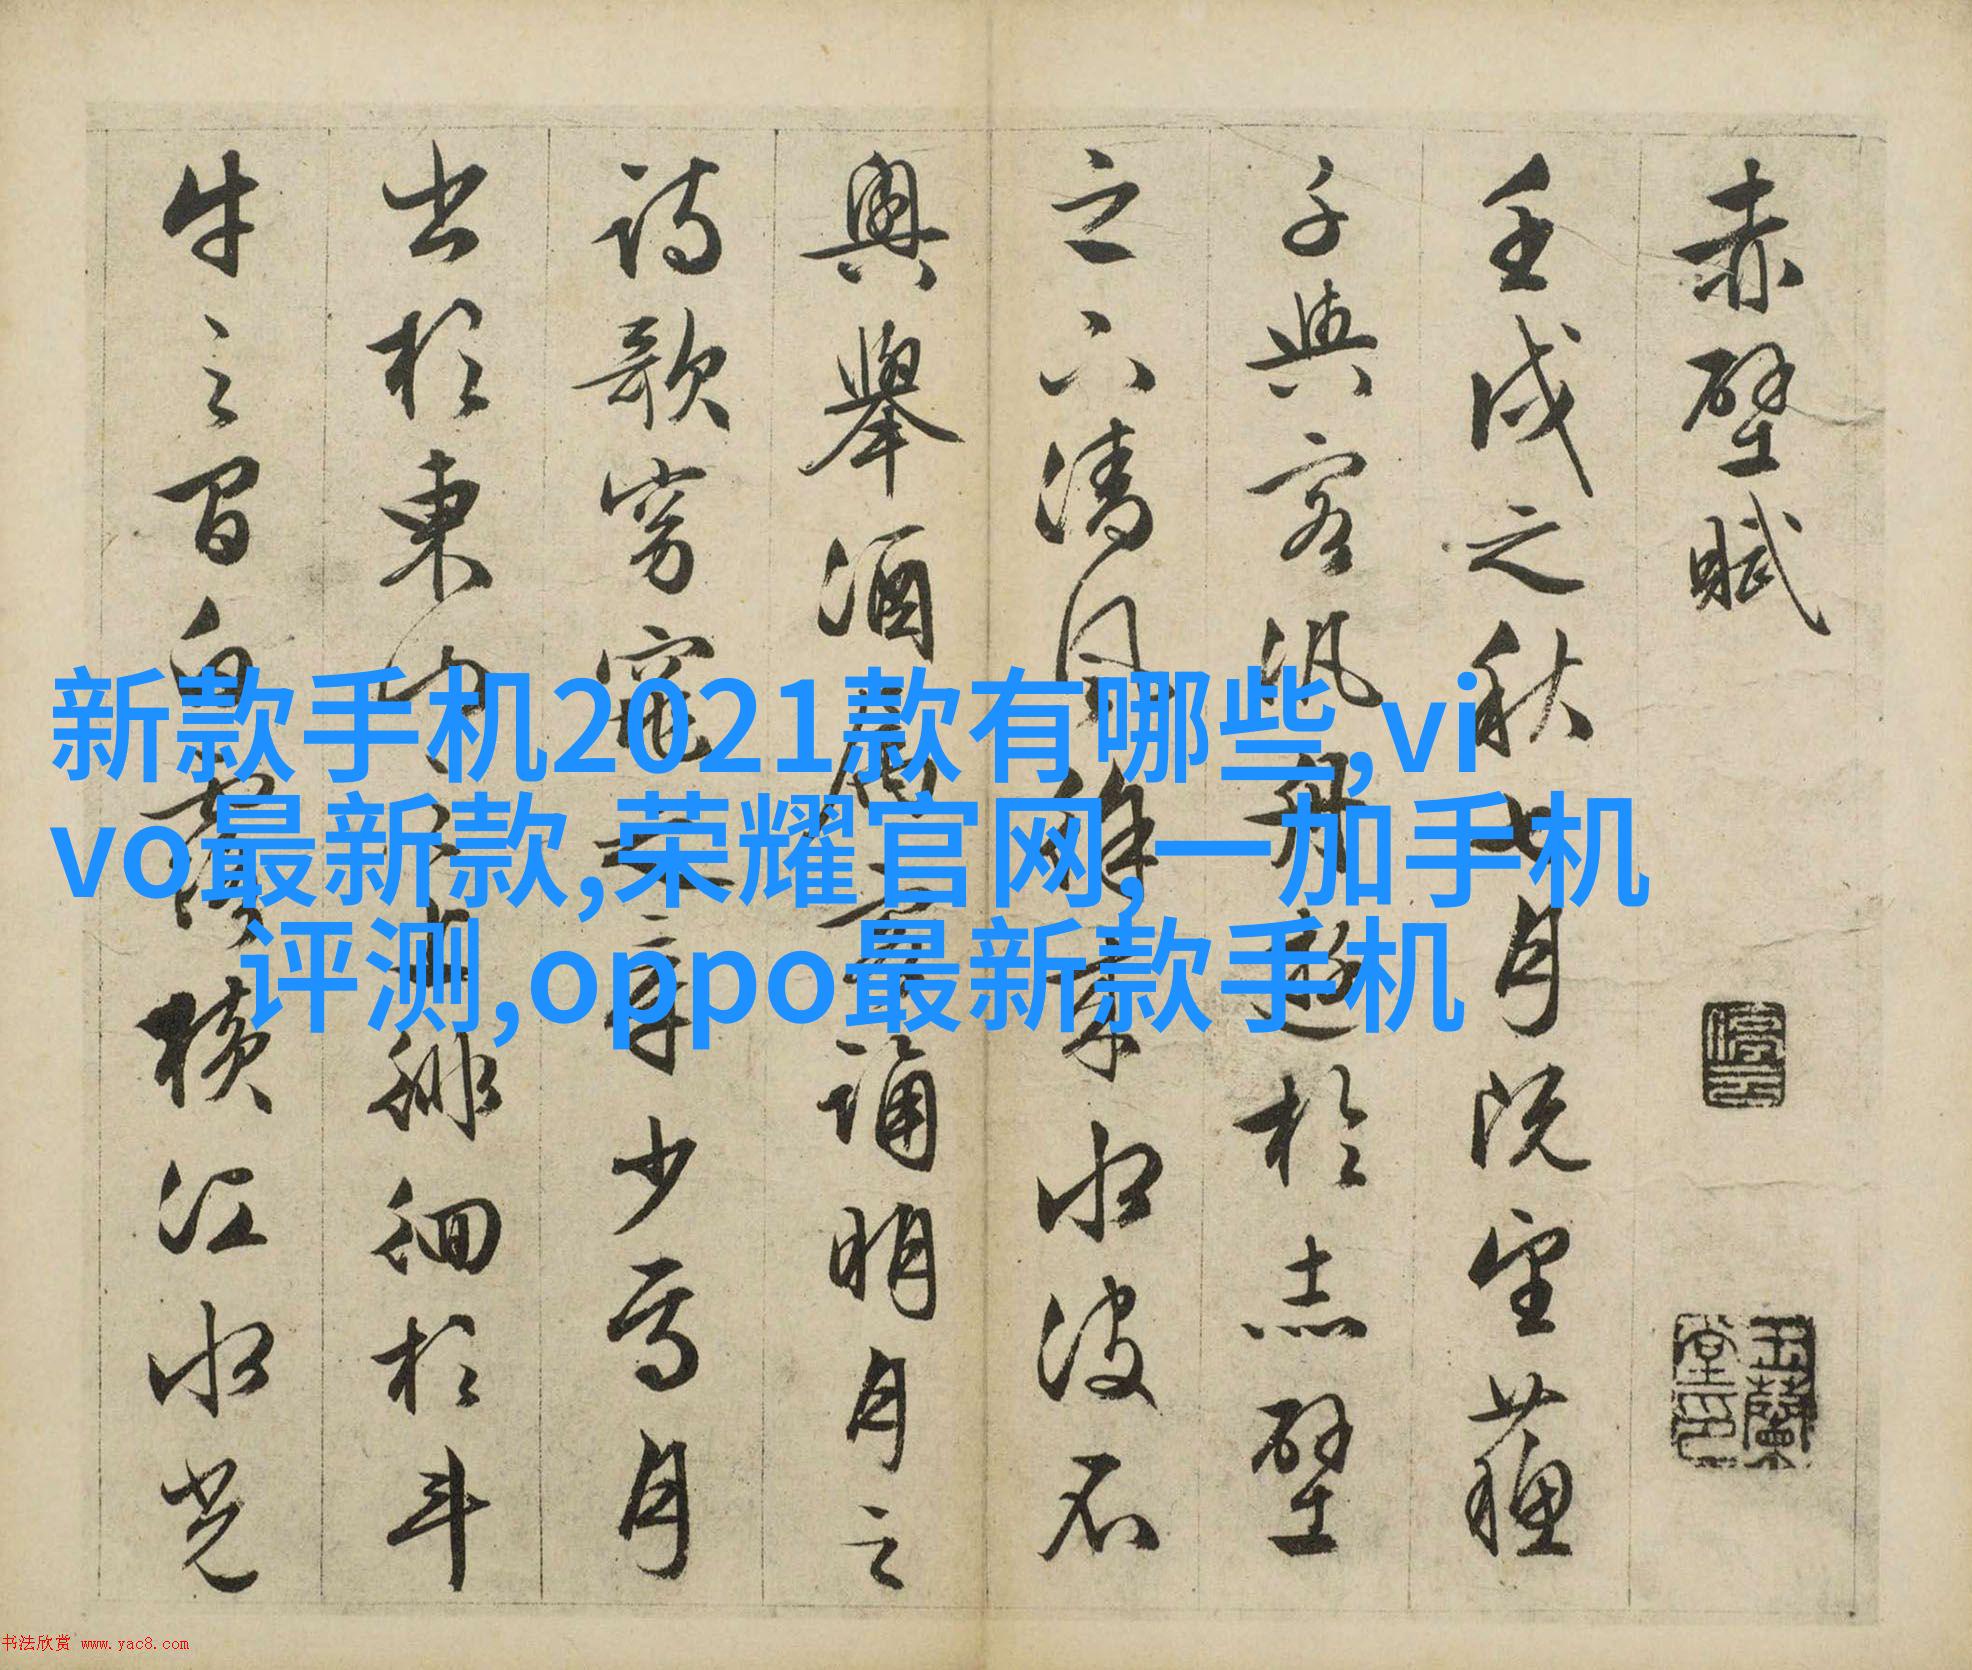 赤壁賦
壬戌之秋七月既望蘇
子與客汎舟遊於赤壁
之下清風徐來水波不
興舉酒屬客誦明月之
詩歌窈窕之章少焉月
出於東山之上徘徊於斗
牛之間白露橫江水光
停雲
玉蘭堂印
新款手机2021款有哪些,vi
vo最新款,荣耀官网,一加手机
评测,oppo最新款手机
书法欣赏 www.yac8.com